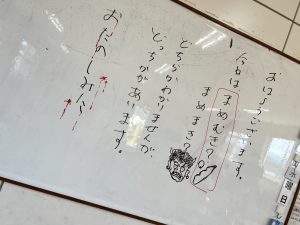 おはようございます。
今日は、まめむき?
まめまき?
どちらかわかりませんが、
どっちかがあります。
おたのしみに!